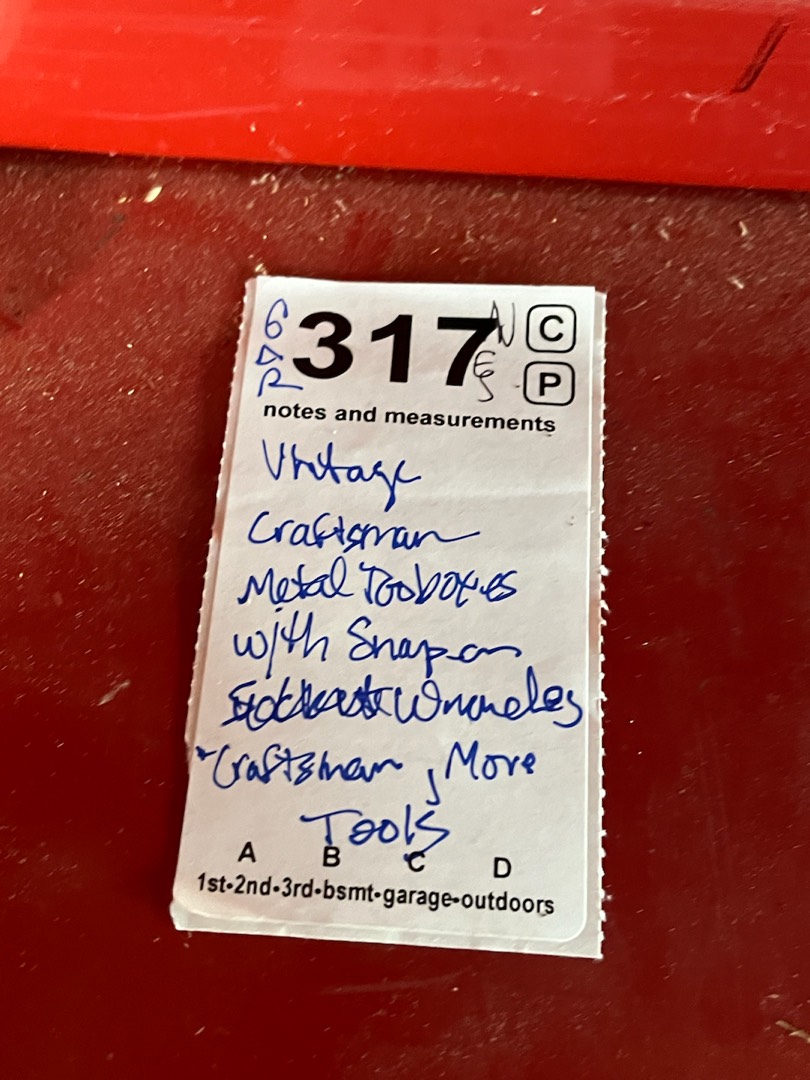 GAR 317 NES C
P
notes and measurements
Vintage
Craftsman
Metal Tooboxes
with Snap-on
Wrenches
+Craftsman, More
Tools
A B C D
1st•2nd•3rd•bsmt•garage•outdoors